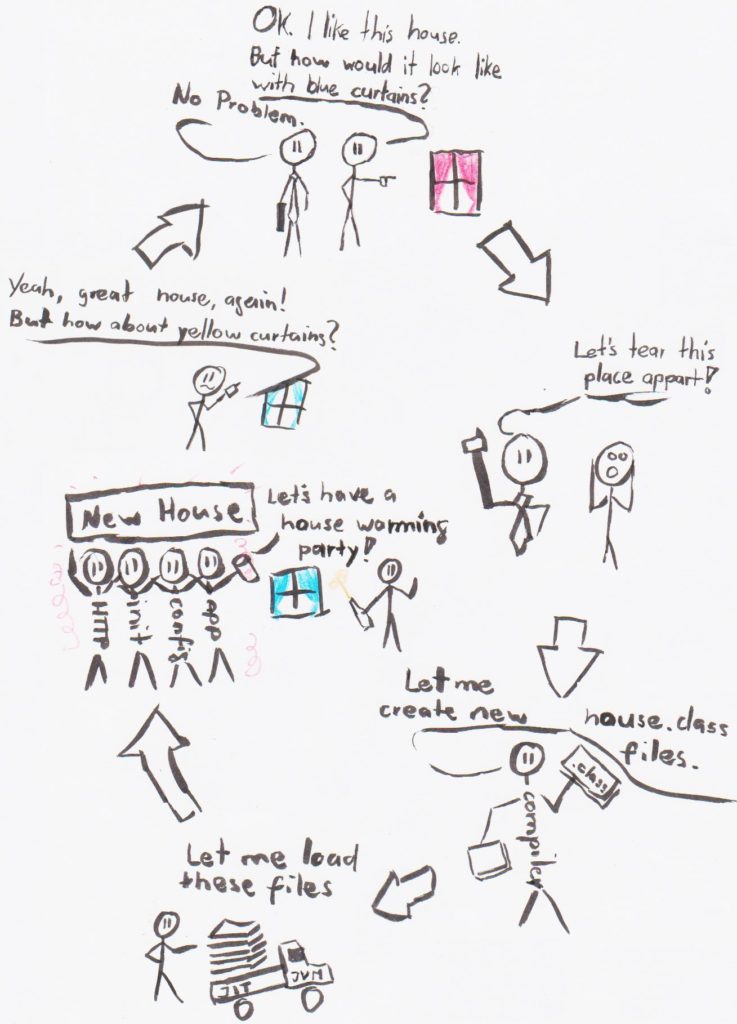 OK. I like this house.
But how would it look like
with blue curtains?
No Problem.
Let's tear this
place appart!
Let me
create new
house.class
files.
.class
compiler
Let me load
these files
JIT
JVM
New House
Let's have a
house warming
party!
HTTP
init
config
app
Yeah, great house, again!
But how about yellow curtains?